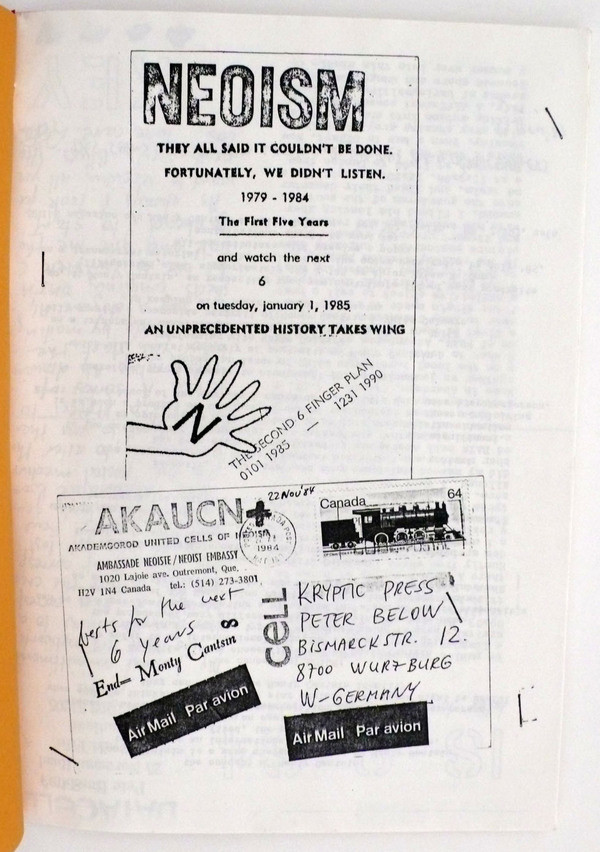 NEOISM
THEY ALL SAID IT COULDN'T BE DONE.
FORTUNATELY, WE DIDN'T LISTEN.
1979 - 1984
The First Five Years
and watch the next
6
on tuesday, january 1, 1985
AN UNPRECEDENTED HISTORY TAKES WING
N
THE SECOND 6 FINGER PLAN
0101 1985 — 1231 1990
22 NOV '84
AKAUCN+
AKADEMGOROD UNITED CELLS OF NEOISM
AMBASSADE NEOISTE/NEOIST EMBASSY
1020 Lajoie ave. Outremont, Que.
H2V 1N4 Canada tel.: (514) 273-3801
1984
Canada 64
bests for the next
6 years
End= Monty Cantsin 8
cell
KRYPTIC PRESS
PETER BELOW
BISMARCKSTR. 12.
8700 WURZBURG
W-GERMANY
Air Mail Par avion
Air Mail Par avion